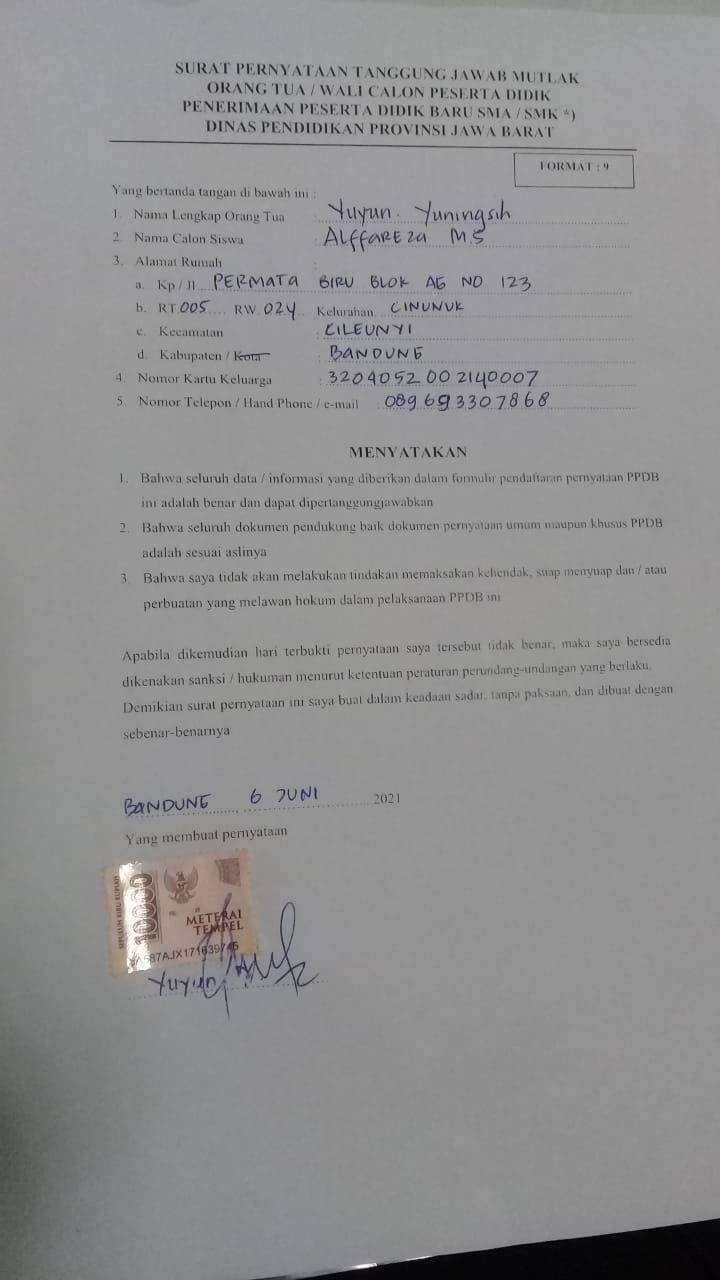 SURAT PERNYATAAN TANGGUNG JAWAB MUTLAK
ORANG TUA / WALI CALON PESERTA DIDIK
PENERIMAAN PESERTA DIDIK BARU SMA / SMK *)
DINAS PENDIDIKAN PROVINSI JAWA BARAT
FORMAT : 9
Yang bertanda tangan di bawah ini :
1. Nama Lengkap Orang Tua : Yuyun Yuningsih
2. Nama Calon Siswa : ALFFAREZA M.S
3. Alamat Rumah :
a. Kp / Jl. PERMATA BIRU BLOK AG NO 123
b. RT.005 RW.024 Kelurahan. CINUNUK
c. Kecamatan : CILEUNYI
d. Kabupaten / Kota : BANDUNG
4. Nomor Kartu Keluarga : 3204052002140007
5. Nomor Telepon / Hand Phone / e-mail : 089693307868
MENYATAKAN
1. Bahwa seluruh data / informasi yang diberikan dalam formulir pendaftaran pernyataan PPDB
ini adalah benar dan dapat dipertanggungjawabkan
2. Bahwa seluruh dokumen pendukung baik dokumen pernyataan umum maupun khusus PPDB
adalah sesuai aslinya
3. Bahwa saya tidak akan melakukan tindakan memaksakan kehendak, suap menyuap dan / atau
perbuatan yang melawan hokum dalam pelaksanaan PPDB ini
Apabila dikemudian hari terbukti pernyataan saya tersebut tidak benar, maka saya bersedia
dikenakan sanksi / hukuman menurut ketentuan peraturan perundang-undangan yang berlaku.
Demikian surat pernyataan ini saya buat dalam keadaan sadar, tanpa paksaan, dan dibuat dengan
sebenar-benarnya
BANDUNG, 6 JUNI 2021
Yang membuat pernyataan
SEPULUH RIBU RUPIAH
10000
METERAI
TEMPEL
Yuyun